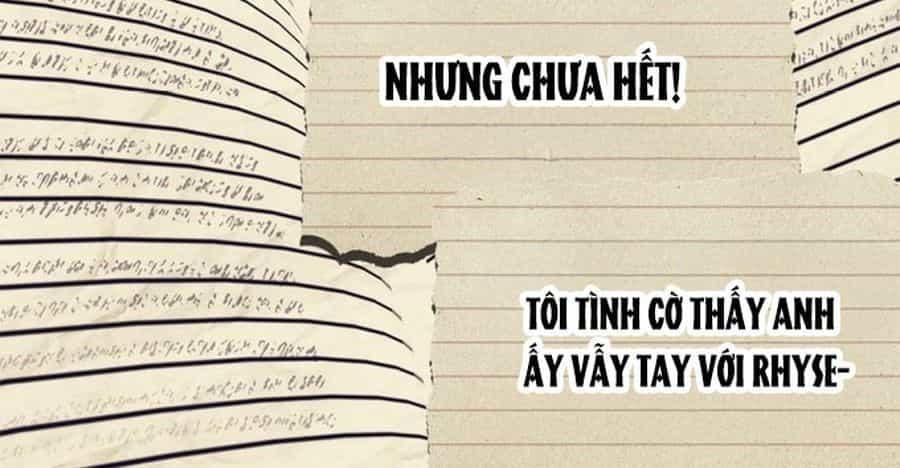 NHƯNG CHƯA HẾT!
TÔI TÌNH CỜ THẤY ANH
ẤY VẪY TAY VỚI RHYSE-